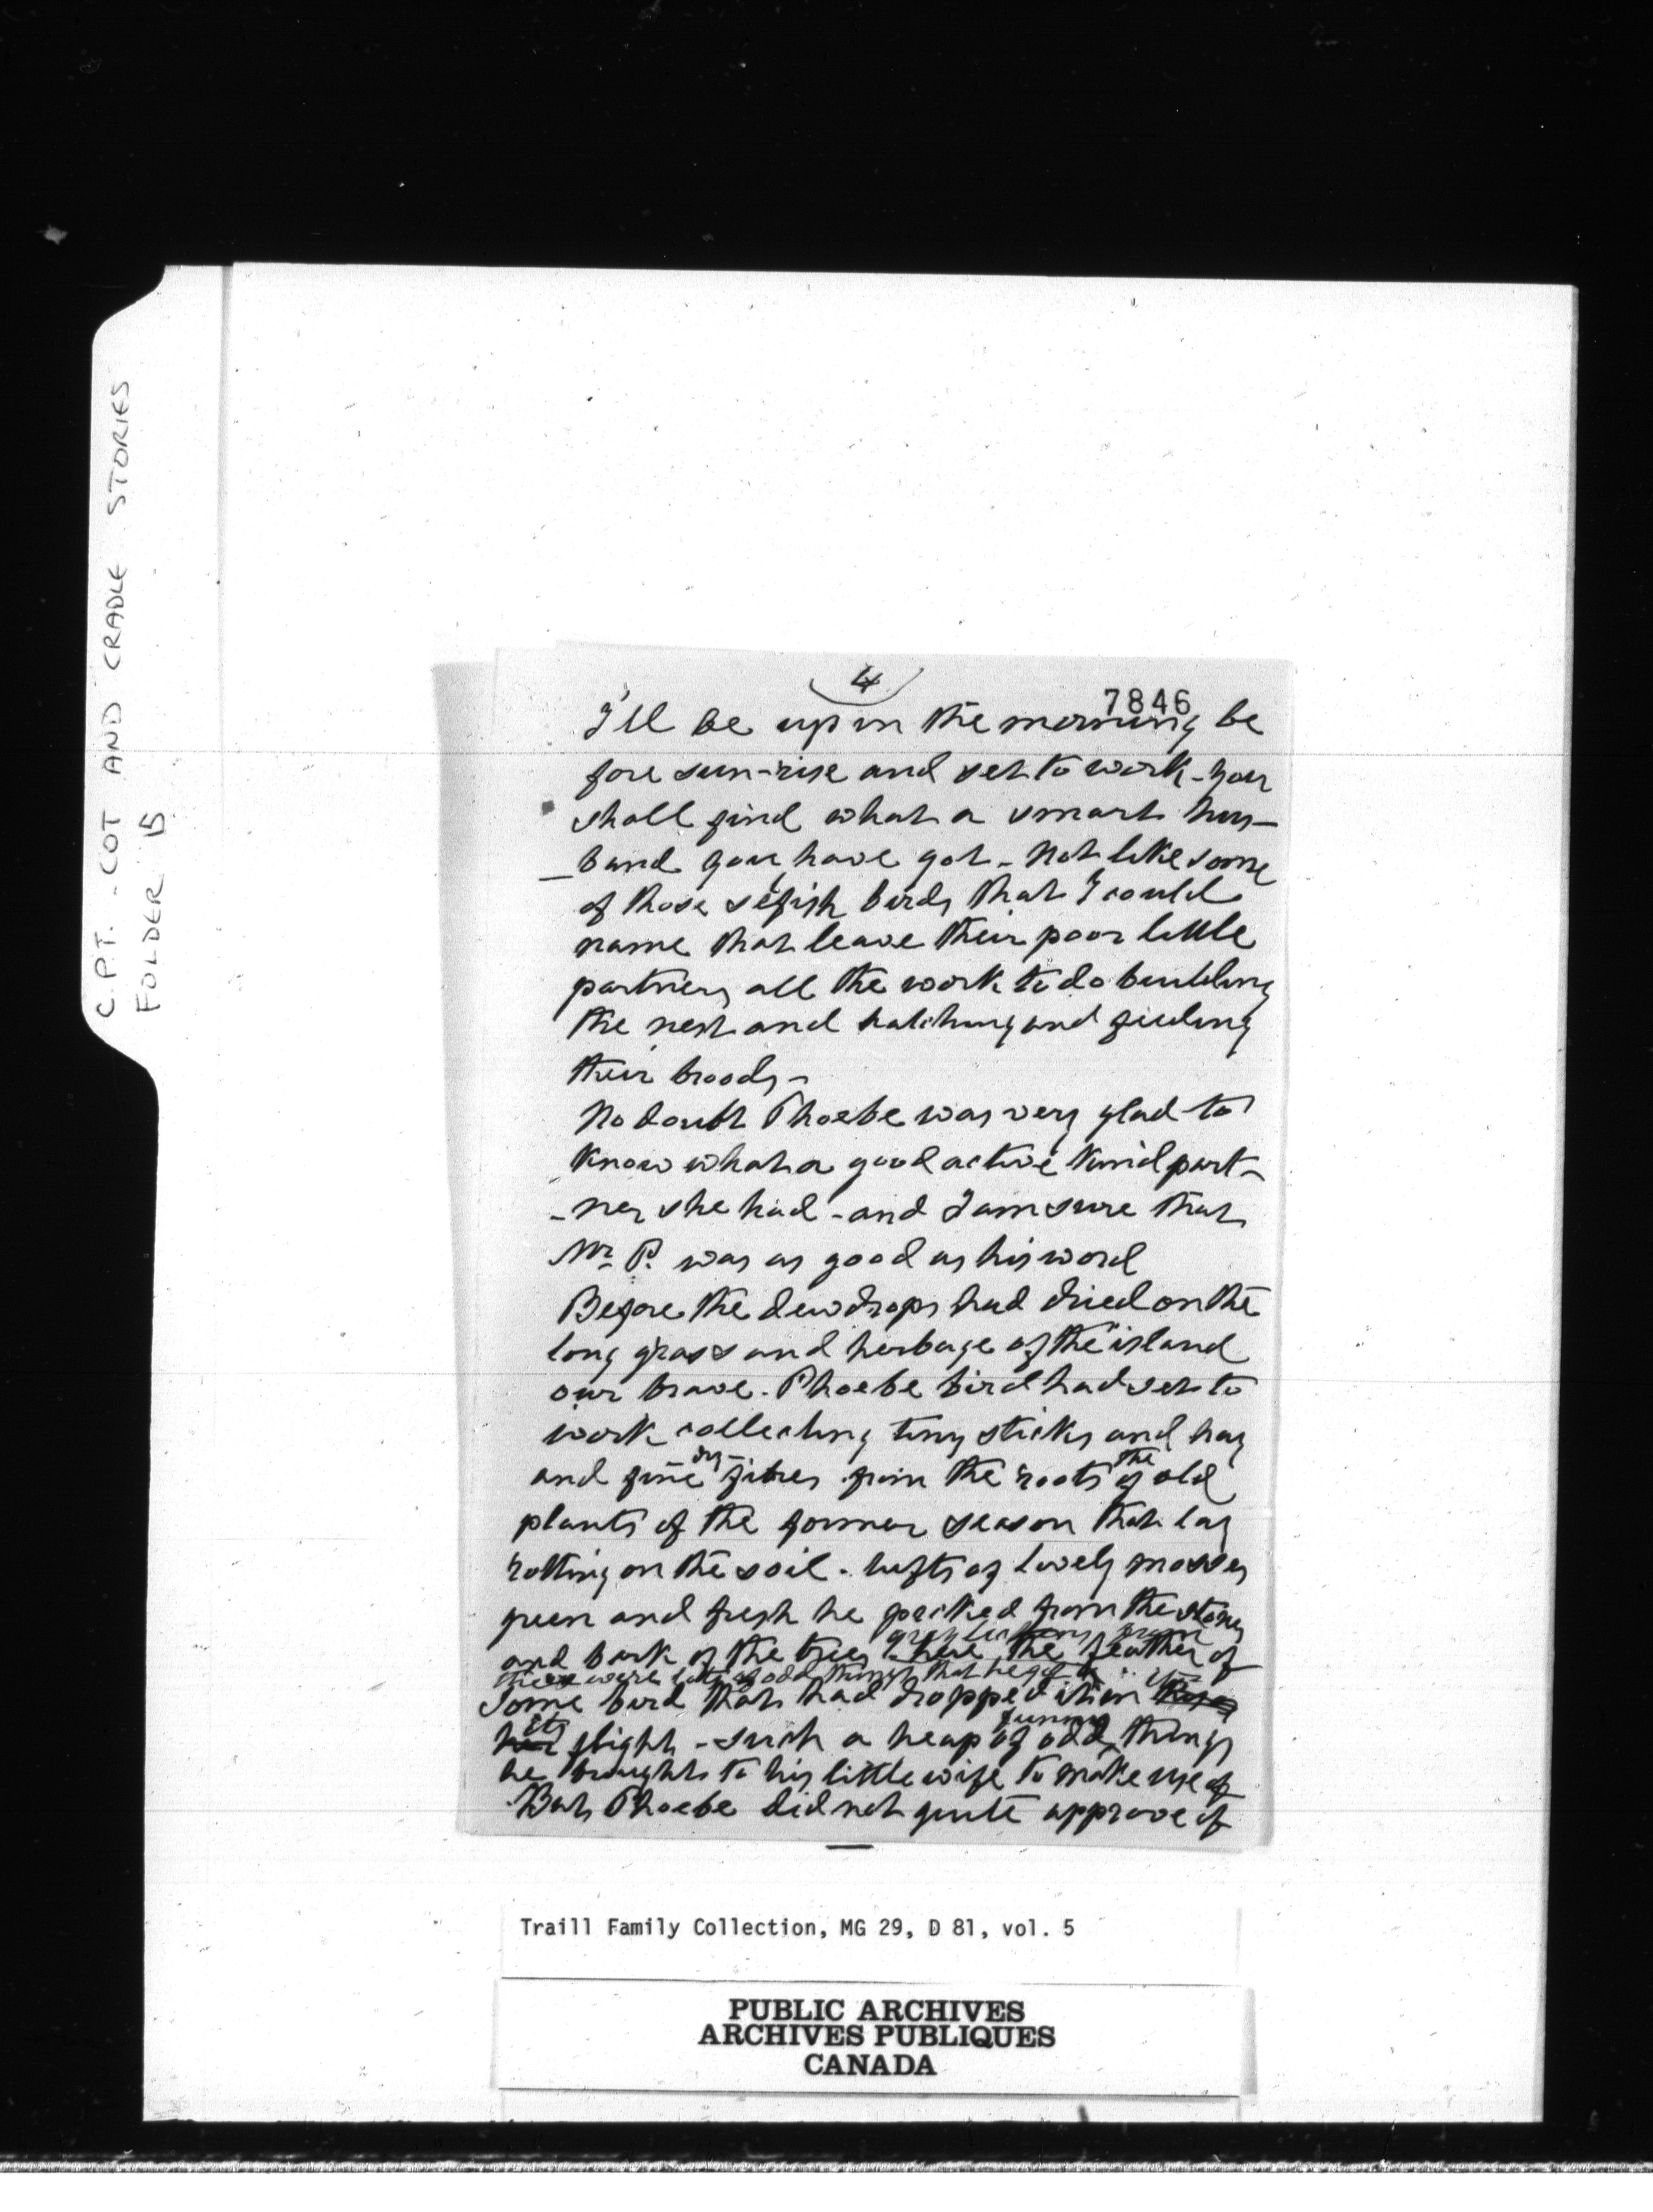 C.P.T. - COT AND CRADLE STORIES
FOLDER 15
4
7846
I'll be up in the morning be
fore sun-rise and set to work - you
shall find what a smart hus-
-band you have got - Not like some
of those selfish birds that I could
name that leave their poor little
partners all the work to do building
the nest and hatching and feeding
their broods -
No doubt Phoebe was very glad to
know what a good active kind part-
-ner she had - and I am sure that
Mr. P. was as good as his word
Before the dewdrops had dried on the
long grass and herbage of the island
our brave Phoebe bird had set to
work collecting tiny sticks and hay
and fine dry fibres from the roots of the old
plants of the former season that lay
rotting on the soil - tufts of lovely mosses
green and fresh he pricked from the stones
grey lichens from
and bark of the trees - here the feather of
there were lots of odd things that he got
some bird that had dropped it in
its flight - such a heap of funny odd things
he brought to his little wife to make use of
But Phoebe did not quite approve of
Traill Family Collection, MG 29, D 81, vol. 5
PUBLIC ARCHIVES
ARCHIVES PUBLIQUES
CANADA